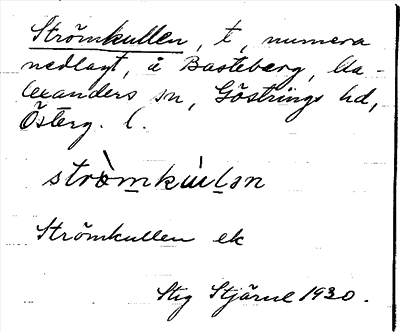 Strömkullen, t, numera
nedlagt, å Basteberg,
lexanders sn, Göstrings hd,
Österg. l.
strömkulən
Strömkullen ek
Stig Stjärne 1930.